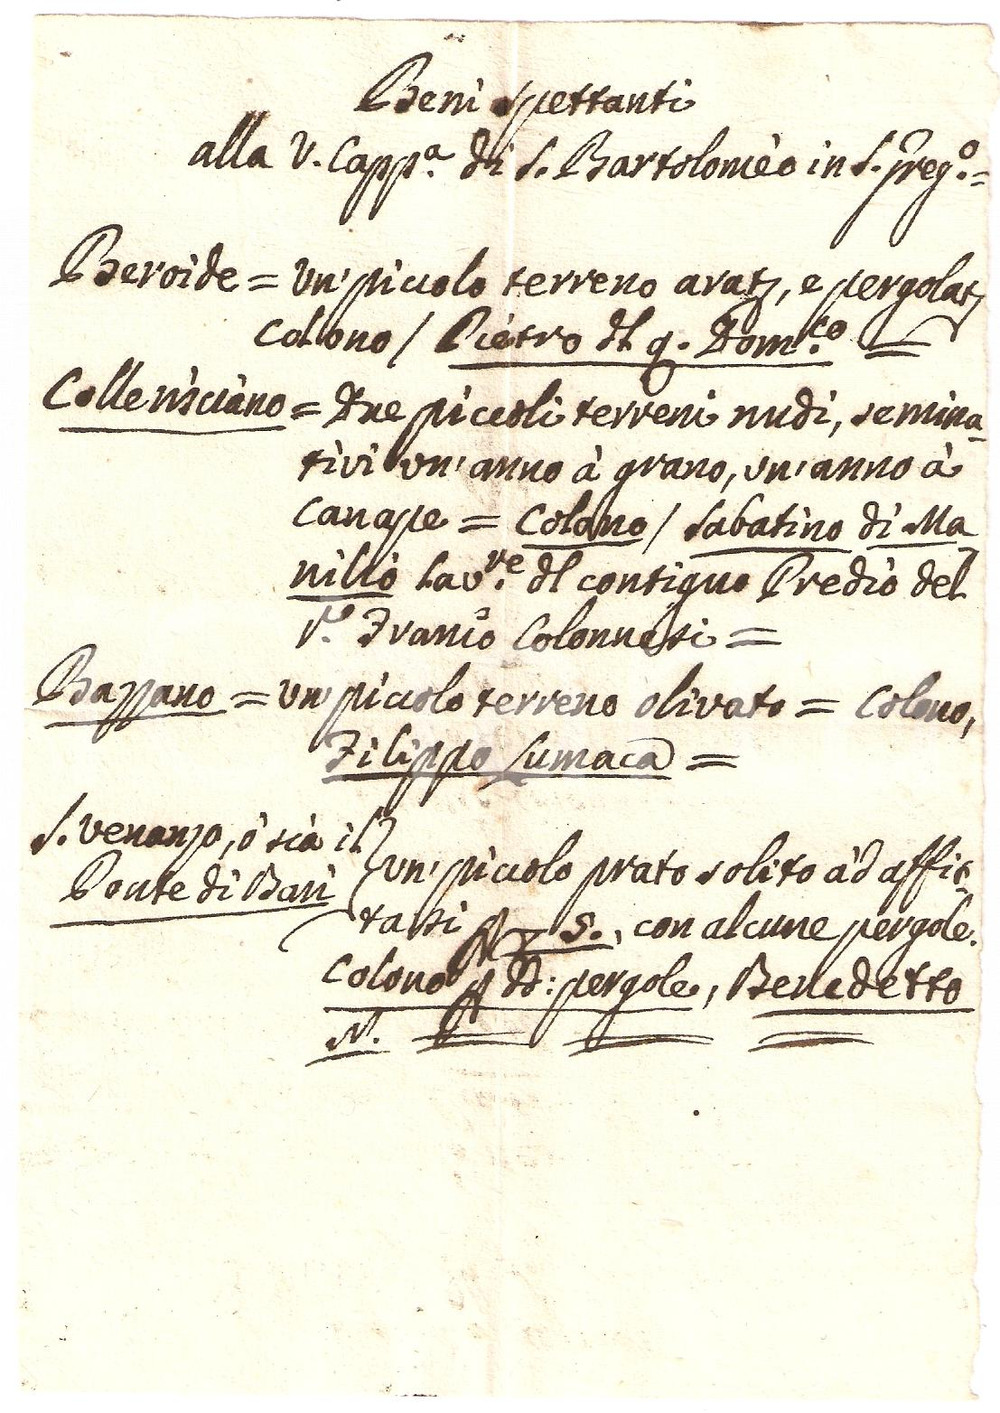 Beni spettanti
alla V. Capp.ª di S. Bartolomèo in S. Greg.º =
Beroide = un' piccolo terreno arat.º, e pergolat.º
Colono / Pietro dl q. Dom.co =
Collerisciano = Due piccoli terreni nudi, semina-
tivi un' anno à grano, un' anno à
Canape = Colono / Sabatino di Ma
nilio Lav.re dl contiguo Predio del
S.r Franc.o Colonnesi =
Bazzano = un' piccolo terreno olivato = Colono,
Filippo Lumaca =
S. Venanzo, ò sia il
Ponte di Bari
un' piccolo prato solito àd affit-
tarsi con alcune pergole.
Colono dd: pergole, Benedetto
N.